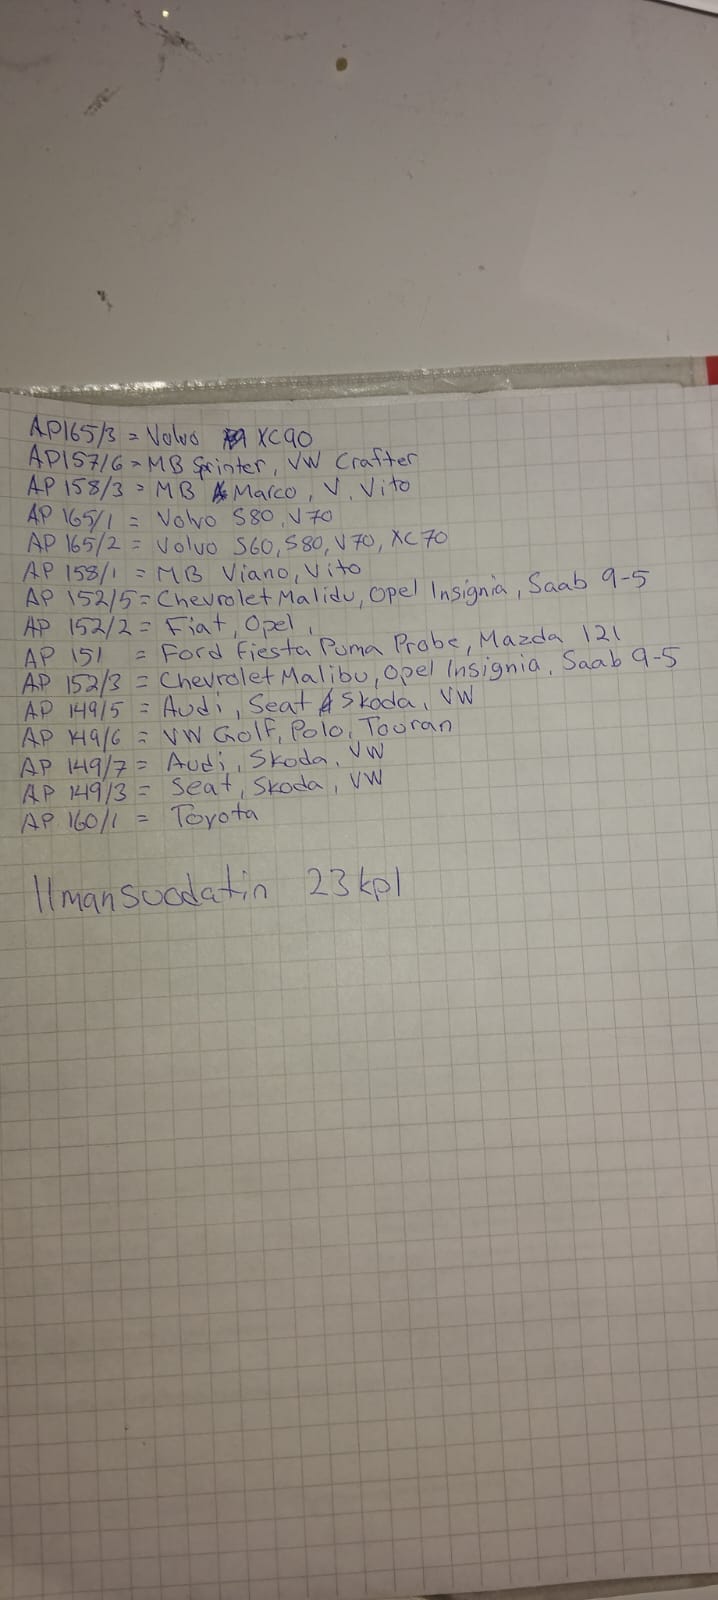 AP165/3 = Volvo XC90
AP157/6 = MB Sprinter, VW Crafter
AP 158/3 = MB Marco, V, Vito
AP 165/1 = Volvo S80, V70
AP 165/2 = Volvo S60, S80, V70, XC70
AP 158/1 = MB Viano, Vito
AP 152/5 = Chevrolet Malidu, Opel Insignia, Saab 9-5
AP 152/2 = Fiat, Opel,
AP 151 = Ford Fiesta Puma Probe, Mazda 121
AP 152/3 = Chevrolet Malibu, Opel Insignia, Saab 9-5
AP 149/5 = Audi, Seat Skoda, VW
AP 149/6 = VW Golf, Polo, Touran
AP 149/7 = Audi, Skoda, VW
AP 149/3 = Seat, Skoda, VW
AP 160/1 = Toyota
Ilmansuodatin 23kpl